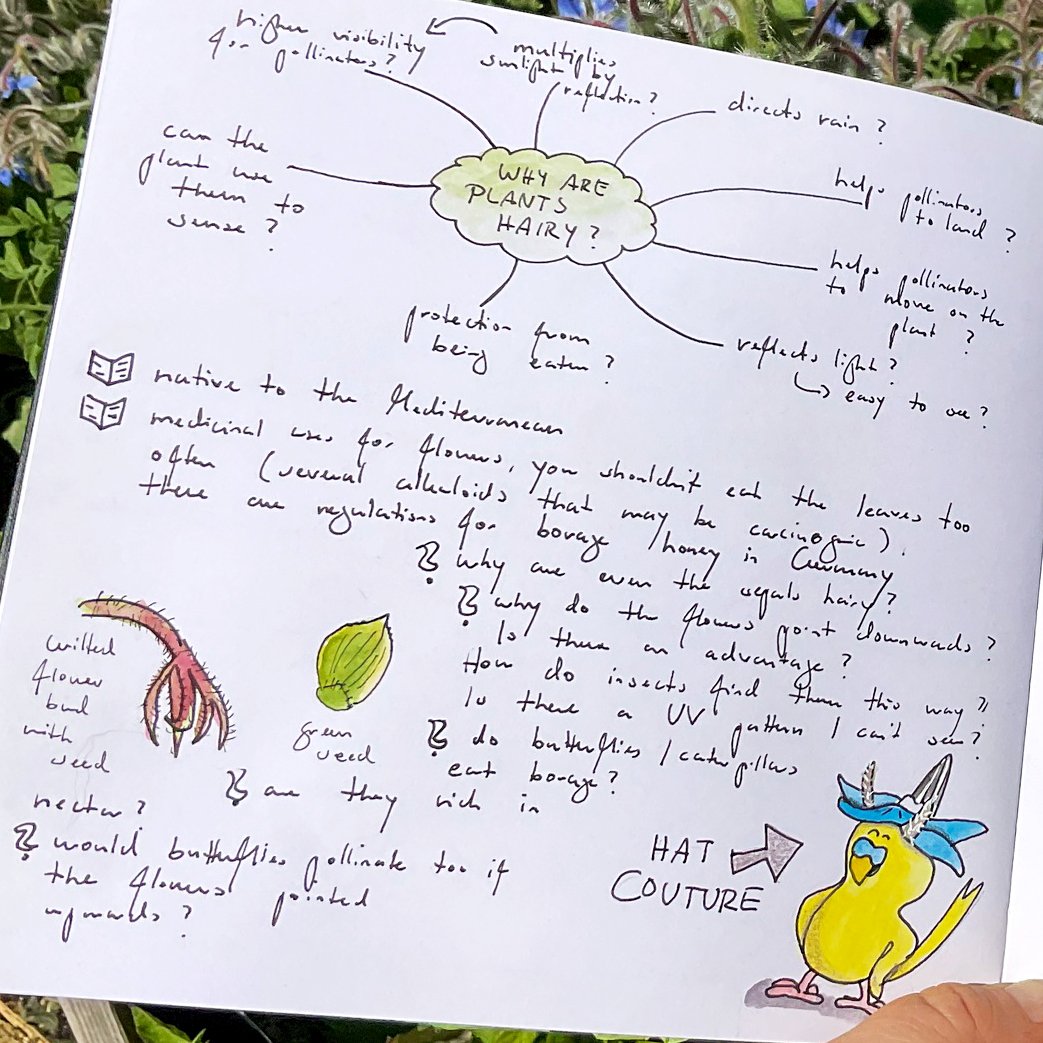 higher visibility
for pollinators?
multiplies
sunlight by
reflection?
directs rain?
can the
plant use
them to
sense?
WHY ARE
PLANTS
HAIRY?
helps pollinators
to land?
helps pollinators
to move on the
plant?
protection from
being eaten?
reflects light?
↳ easy to see?
native to the Mediterranean
medicinal uses for flowers, you shouldn't eat the leaves too
often (several alkaloids that may be carcinogenic).
there are regulations for borage honey in Germany
why are even the sepals hairy?
why do the flowers point downwards?
Is there an advantage?
How do insects find them this way?
Is there a UV pattern I can't see?
do butterflies / caterpillars
eat borage?
wilted
flower
bud
with
seed
green
seed
are they rich in
nectar?
would butterflies pollinate too if
the flowers pointed
upwards?
HAT
COUTURE